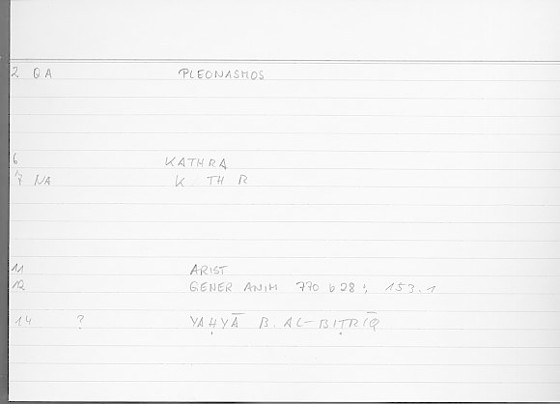 2 QA PLEONASMOS
6 KATHRA
7 NA K TH R
11 ARIST
12 GENER ANIM 770 b 28; 153.1
14 ? YAḤYĀ B. AL-BIṬRĪQ